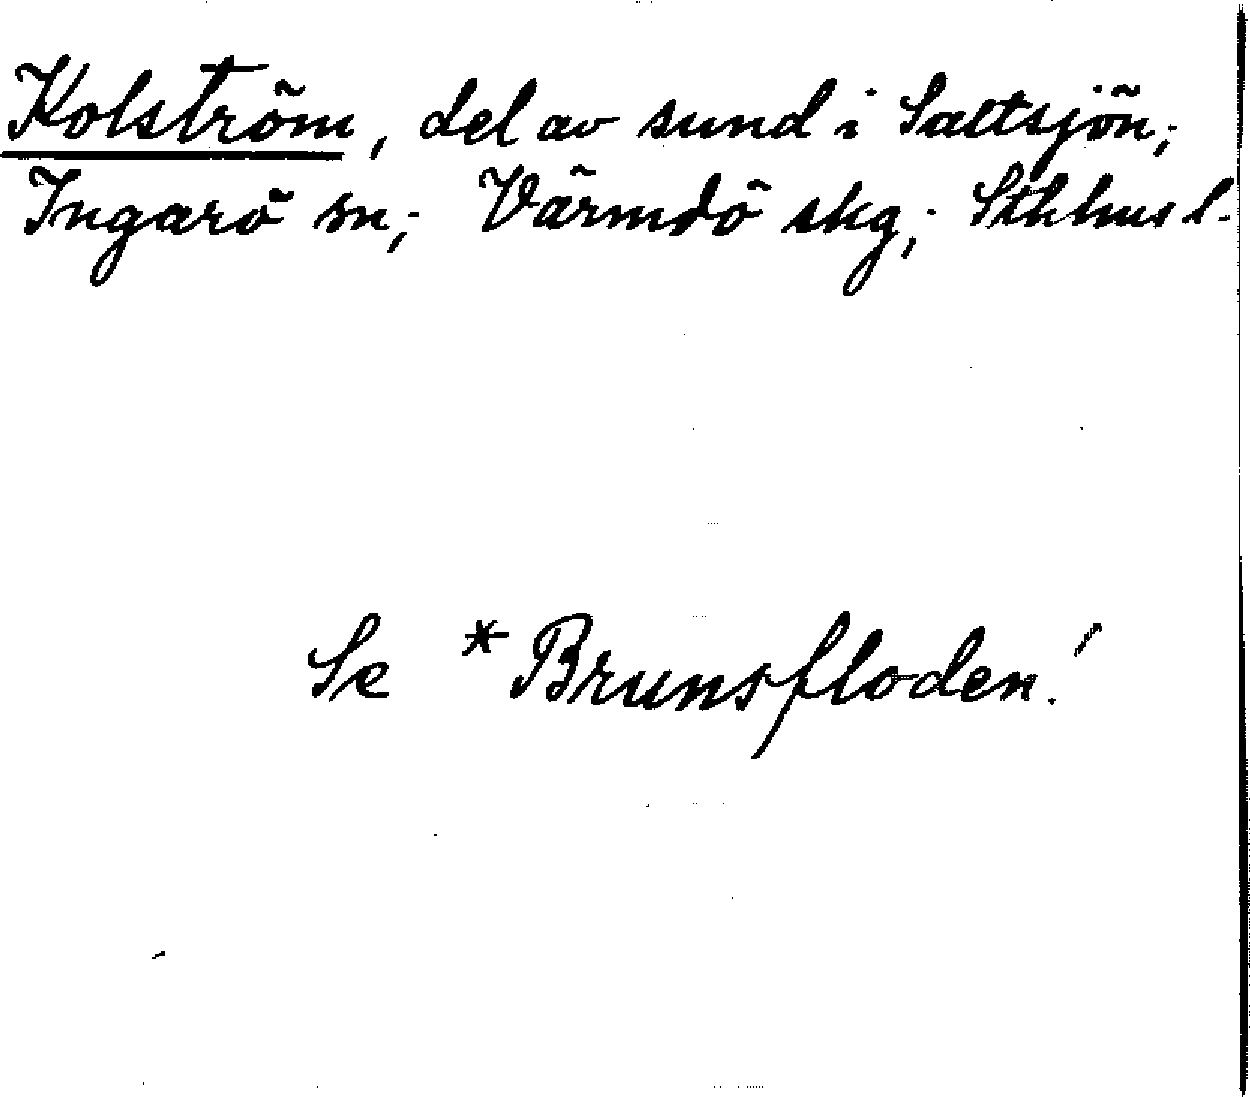 Kolström, del av sund i Saltsjön;
Ingarö sn; Värmdö skg; Sthlms l.
Se *Brunsfloden!